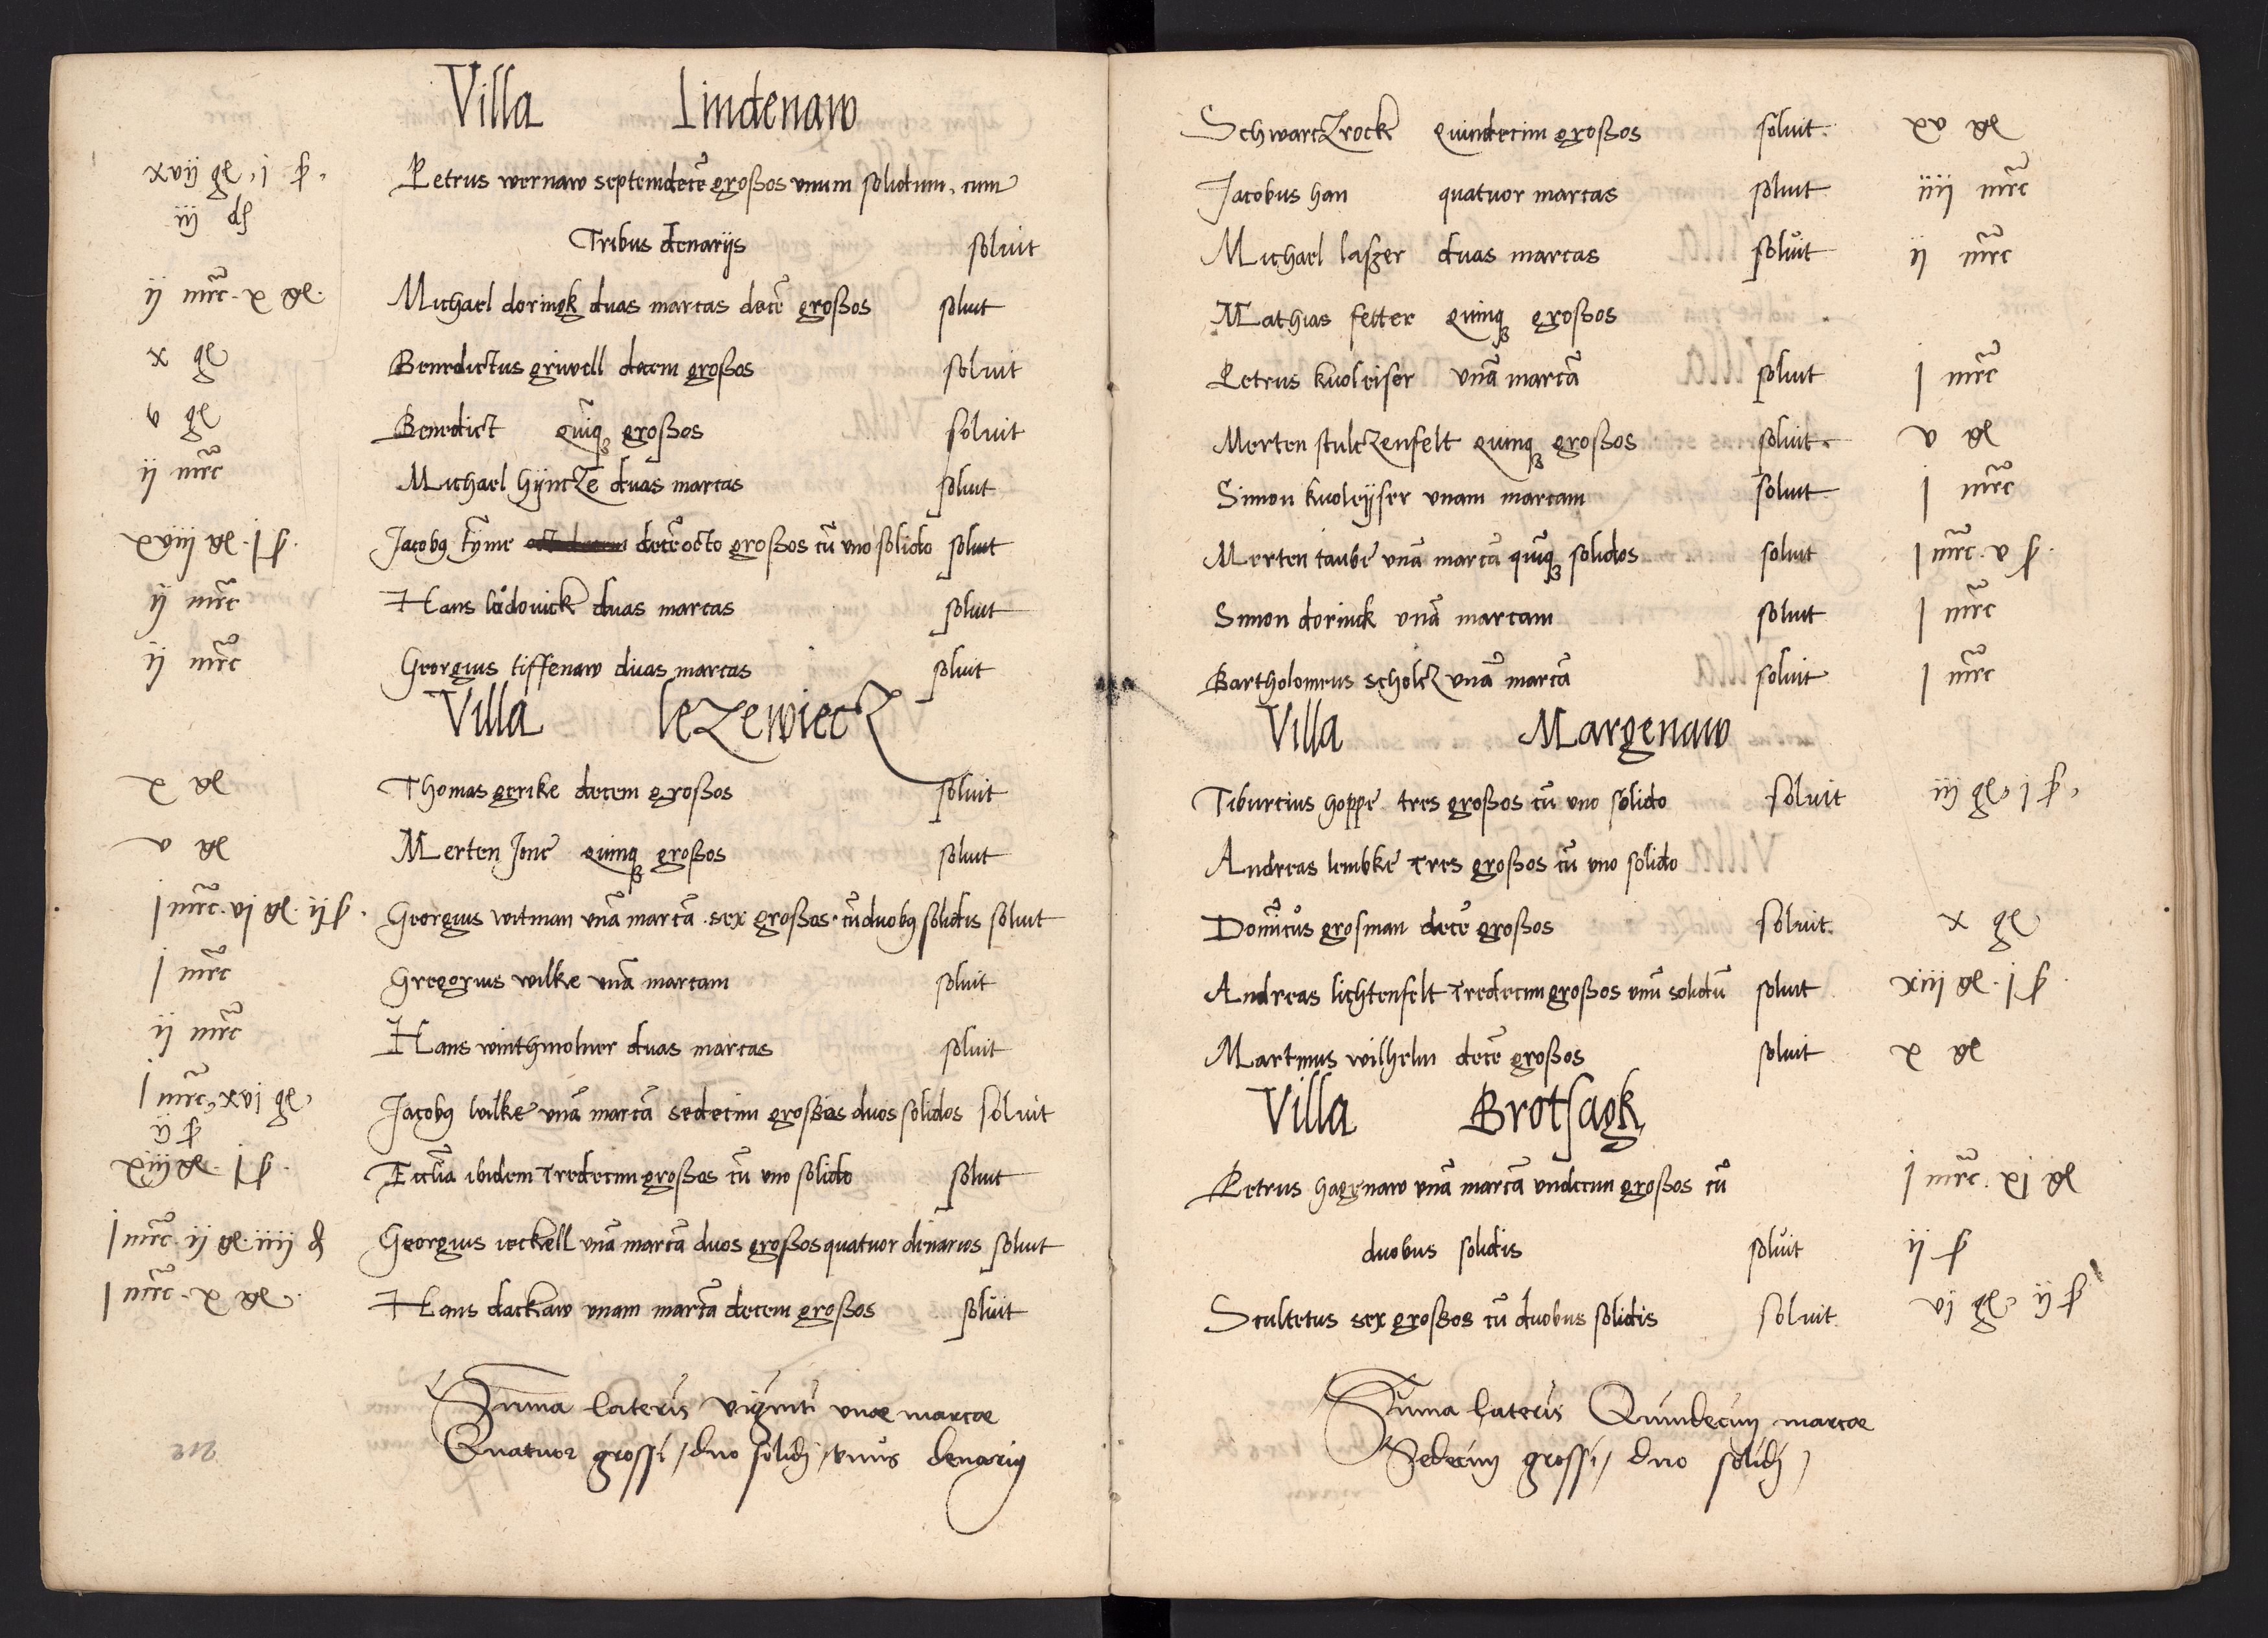 Villa Lindenaw
xvij gl. j ß. Petrus wernaw septemdecē großos vnum solidum, cum
iij dl Tribus denarijs soluit
ij mrc. x gl. Michael doringk duas marcas decē großos soluit
x gl Benedictus griwell decem großos soluit
v gl Benedict quīqꝫ großos soluit
ij mrc Michael hÿntze duas marcas soluit
xviij gl. j ß. Jacobꝯ tÿme decē octo großos cū vno solido soluit
ij mrc Hans lůdouick duas marcas soluit
ij mrc Georgius tiffenaw duas marcas soluit
Villa lezewiecz
x gl Thomas gerike decem großos soluit
v gl Merten Jonc quinqꝫ großos soluit
j mrc. vj gl. ij ß. Georgius witman vnā marcā sex großos. cū duobꝯ solidis soluit
j mrc Gregorius wilke vnā marcam soluit
ij mrc Hans winthmolner duas marcas soluit
j mrc, xvj gl, Jacobꝯ wilke vnā marcā sedecim großos duos solidos soluit
ij ß
xiij gl. j ß. Ecclīa ibidem Tredecim großos cū vno solido soluit
j mrc. ij gl. iiij d Georgius ieckell vnā marcā duos großos quatuor dinarios soluit
j mrc. x gl. Hans dackaw vnam marcā decem großos soluit
Sūma lateris viginti vnae marcae
Quatuor grossi / duo solidj / vnus denariꝯ
212
Schwarczrock Quindecim großos soluit. xv gl
Jacobus han quatuor marcas soluit iiij mrc
Michael laszer duas marcas soluit ij mrc
Mathias fetter Quinqꝫ großos
Petrus kwoleiser vnā marcā soluit j mrc
Merten stulczenfelt quinqꝫ großos soluit. v gl
Simon kwoleÿser vnam marcam soluit j mrc
Merten taube vnā marcā quīqꝫ solidos soluit j mrc. v ß.
Simon dorinck vnā marcam soluit j mrc
Bartholomeus scholcz vnā marcā soluit j mrc
Villa Margenaw
Tiburcius hoppe tres großos cū vno solido soluit iij gl, j ß,
Andreas lembke Tres großos cū vno solido
Domīcus grosman decē großos soluit. x gl
Andreas lichtenfelt Tredecim großos vnū solidū soluit xiij gl. j ß.
Martinus wilhelm decē großos soluit x gl
Villa Brotsagk
Petrus hagenaw vnā marcā vndecim großos cū j mrc. xj gl
duobus solidis soluit ij ß
Scultetus sex großos cū duobus solidis soluit. vj gl ij ß
Sūma lateris Quindecim marcae
Sedecim grossi / duo solidj /